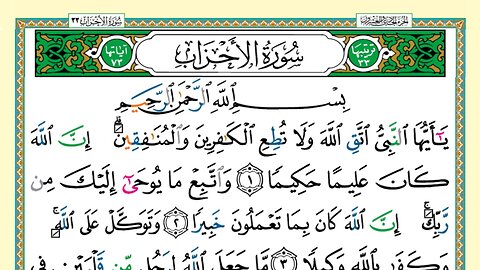 سُورَةُ الأَحْزَابِ ٣٣
تَرْتِيبُهَا ٣٣ سُورَةُ الأَحْزَابِ آيَاتُهَا ٧٣
بِسْمِ ٱللَّهِ ٱلرَّحْمَٰنِ ٱلرَّحِيمِ
يَٰٓأَيُّهَا ٱلنَّبِىُّ ٱتَّقِ ٱللَّهَ وَلَا تُطِعِ ٱلْكَٰفِرِينَ وَٱلْمُنَٰفِقِينَ ۗ إِنَّ ٱللَّهَ
كَانَ عَلِيمًا حَكِيمًا ١ وَٱتَّبِعْ مَا يُوحَىٰٓ إِلَيْكَ مِن
رَّبِّكَ ۚ إِنَّ ٱللَّهَ كَانَ بِمَا تَعْمَلُونَ خَبِيرًا ٢ وَتَوَكَّلْ عَلَى ٱللَّهِ ۚ
وَكَفَىٰ بِٱللَّهِ وَكِيلًا ٣ مَّا جَعَلَ ٱللَّهُ لِرَجُلٍ مِّن قَلْبَيْنِ فِى